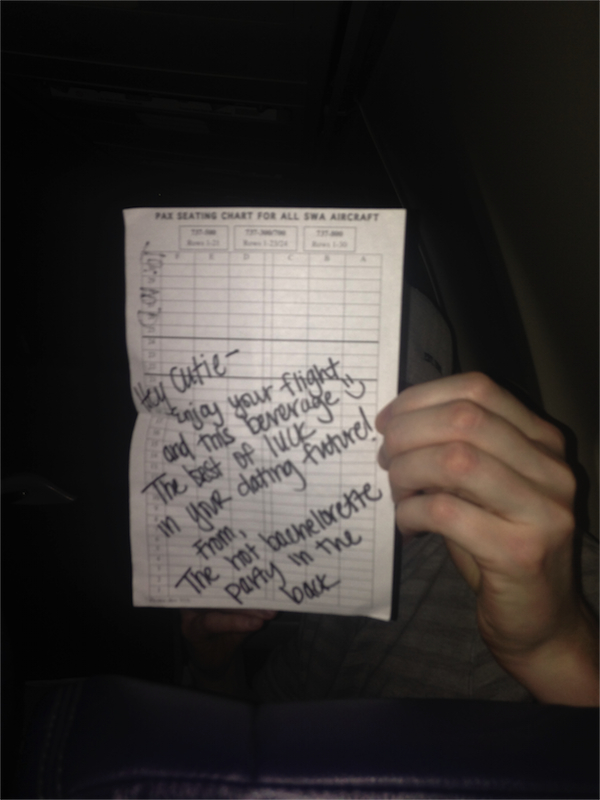 PAX SEATING CHART FOR ALL SWA AIRCRAFT
737-500 737-300/700 737-800
Rows 1-21 Rows 1-23/24 Rows 1-30
F E D C B A
Hey Cutie-
Enjoy your flight
and this beverage :)
The best of luck
in your dating future!
From,
The hot bachelorette
party in the
back